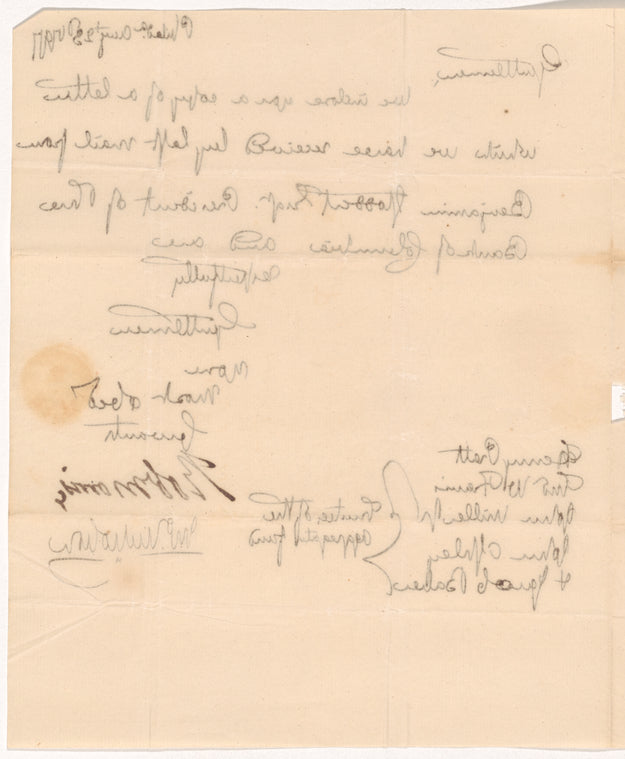 Philad.ᵃ Augt 23ᵈ 1797
Gentlemen,
We inclose you a copy of a letter
which we have received by last mail from
Benjamin Stoddert Esqr. President of the
Bank of Columbia and are
respectfully
Gentlemen
Your
Most Obedᵗ
Servants
Robt Morris
Jnᵒ. Nicholson
Henry Pratt
Thos W Francis
John Miller Jr
John Ashley
& Jacob Baker
Trustees of the
Aggregate fund